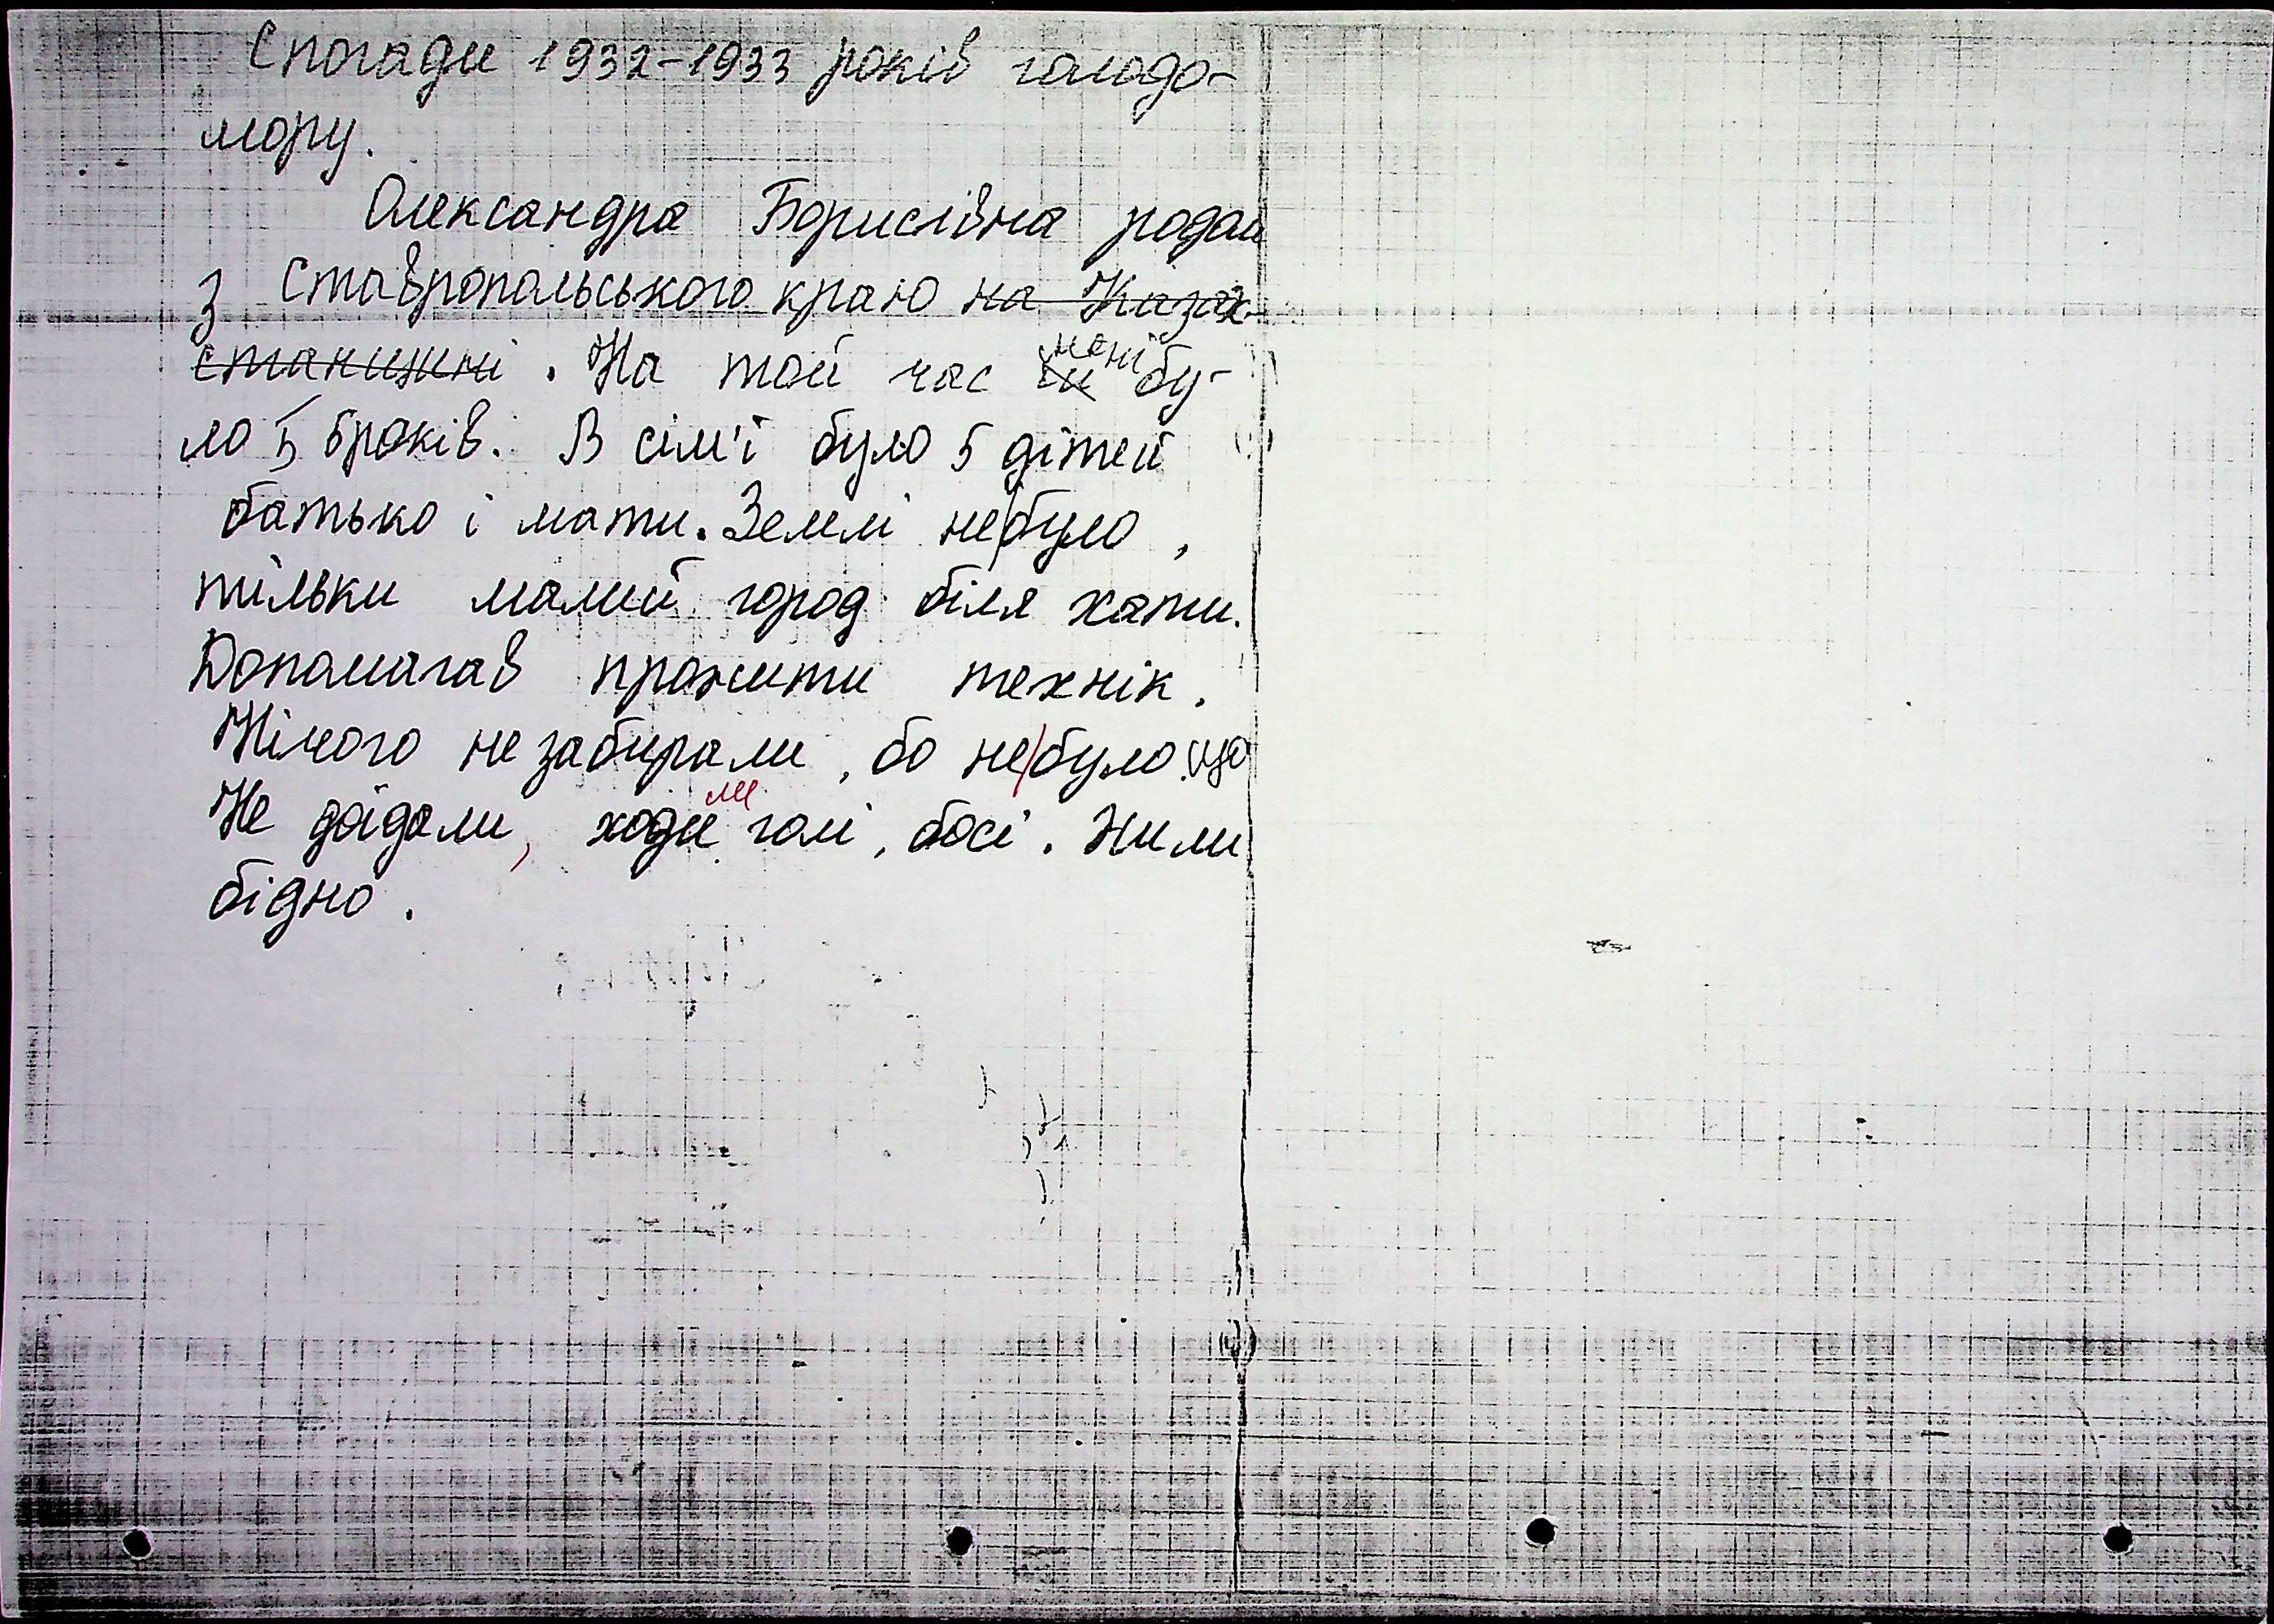 Спогади 1932-1933 років голодо-
мору.
Олександра Борислівна родом
з Ставропольського краю на Казах-
станижні. На той час їй мені бу-
ло 5 років. В сім'ї було 5 дітей
батько і мати. Землі не було,
тільки малий город біля хати.
Допомагав прожити технік.
Нічого не забирали, бо не було що
Не доїдали, ходили голі, босі. Жили
бідно.